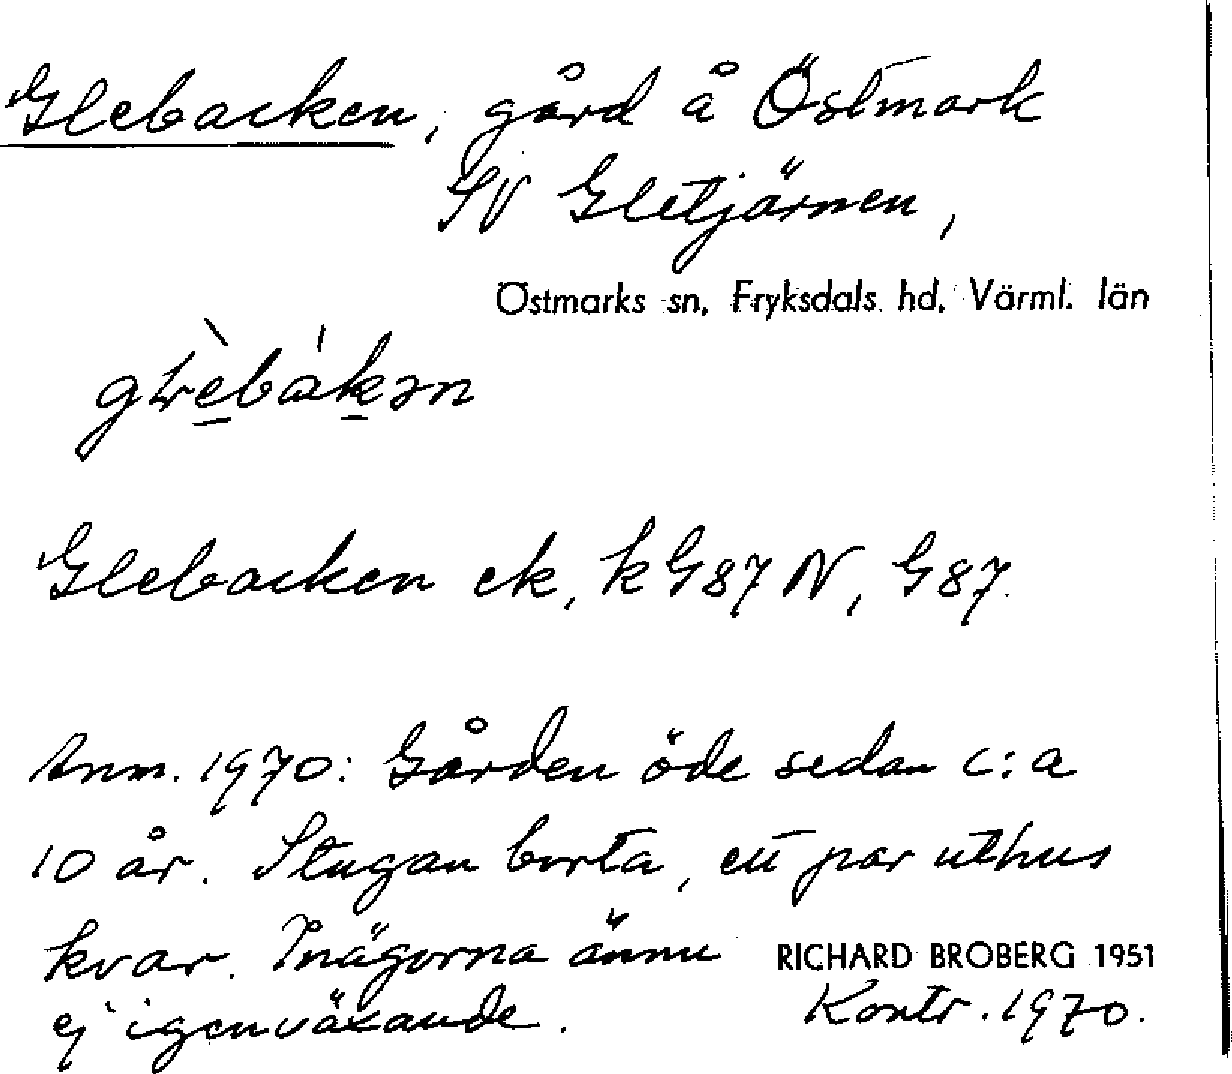 Glebacken, gård å Östmark
SV Gletjärnen,
Östmarks sn, Fryksdals hd, Värml. län
Glebacken ek, k G87 N, G87.
Anm. 1970: Gården öde sedan c:a
10 år. Stugan borta, ett par uthus
kvar. Inägorna ännu
ej igenväxande.
RICHARD BROBERG 1951
Kontr. 1970.